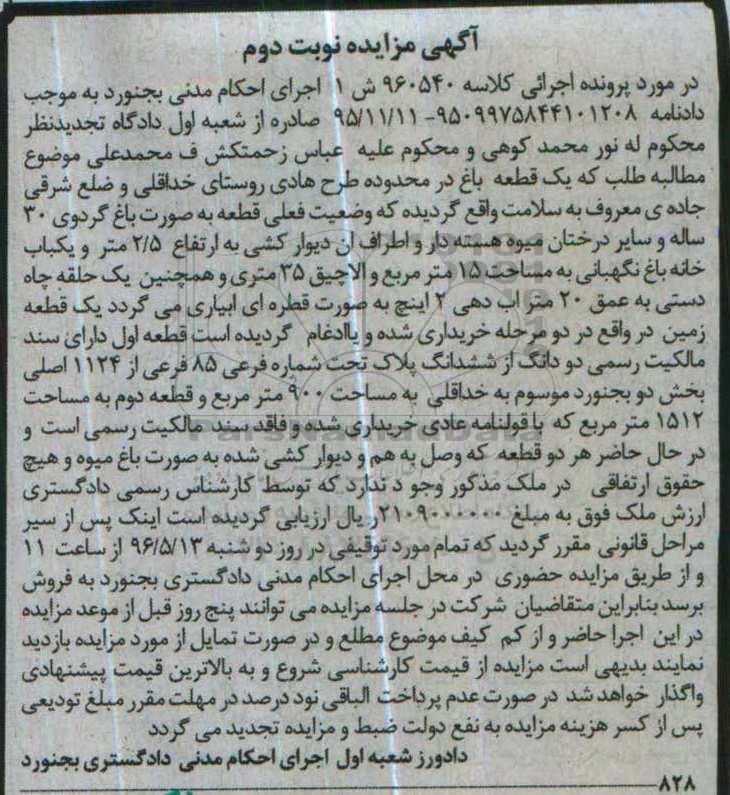 آگهی مزایده نوبت دوم
در مورد پرونده اجرائی کلاسه ۹۶۰۵۴۰ ش ۱ اجرای احکام مدنی بجنورد به موجب
دادنامه ۹۵۰۹۹۷۵۸۴۴۱۰۱۲۰۸- ۹۵/۱۱/۱۱ صادره از شعبه اول دادگاه تجدیدنظر
محکوم له نور محمد کوهی و محکوم علیه عباس زحمتکش ف محمدعلی موضوع
مطالبه طلب که یک قطعه باغ در محدوده طرح هادی روستای خداقلی و ضلع شرقی
جاده ی معروف به سلامت واقع گردیده که وضعیت فعلی قطعه به صورت باغ گردوی ۳۰
ساله و سایر درختان میوه هسته دار و اطراف ان دیوار کشی به ارتفاع ۲/۵ متر و یکباب
خانه باغ نگهبانی به مساحت ۱۵ متر مربع و الاچیق ۳۵ متری و همچنین یک حلقه چاه
دستی به عمق ۲۰ متر اب دهی ۲ اینچ به صورت قطره ای ابیاری می گردد یک قطعه
زمین در واقع در دو مرحله خریداری شده و یاادغام گردیده است قطعه اول دارای سند
مالکیت رسمی دو دانگ از ششدانگ پلاک تحت شماره فرعی ۸۵ فرعی از ۱۱۲۴ اصلی
بخش دو بجنورد موسوم به خداقلی به مساحت ۹۰۰ متر مربع و قطعه دوم به مساحت
۱۵۱۲ متر مربع که با قولنامه عادی خریداری شده و فاقد سند مالکیت رسمی است و
در حال حاضر هر دو قطعه که وصل به هم و دیوار کشی شده به صورت باغ میوه و هیچ
حقوق ارتفاقی در ملک مذکور وجو د ندارد که توسط کارشناس رسمی دادگستری
ارزش ملک فوق به مبلغ ۲۱۰۹۰۰۰۰۰۰ر یال ارزیابی گردیده است اینک پس از سیر
مراحل قانونی مقرر گردید که تمام مورد توقیفی در روز دو شنبه ۹۶/۵/۱۳ از ساعت ۱۱
و از طریق مزایده حضوری در محل اجرای احکام مدنی دادگستری بجنورد به فروش
برسد بنابراین متقاضیان شرکت در جلسه مزایده می توانند پنج روز قبل از موعد مزایده
در این اجرا حاضر و از کم کیف موضوع مطلع و در صورت تمایل از مورد مزایده بازدید
نمایند بدیهی است مزایده از قیمت کارشناسی شروع و به بالاترین قیمت پیشنهادی
واگذار خواهد شد در صورت عدم پرداخت الباقی نود درصد در مهلت مقرر مبلغ تودیعی
پس از کسر هزینه مزایده به نفع دولت ضبط و مزایده تجدید می گردد
دادورز شعبه اول اجرای احکام مدنی دادگستری بجنورد
۸۲۸